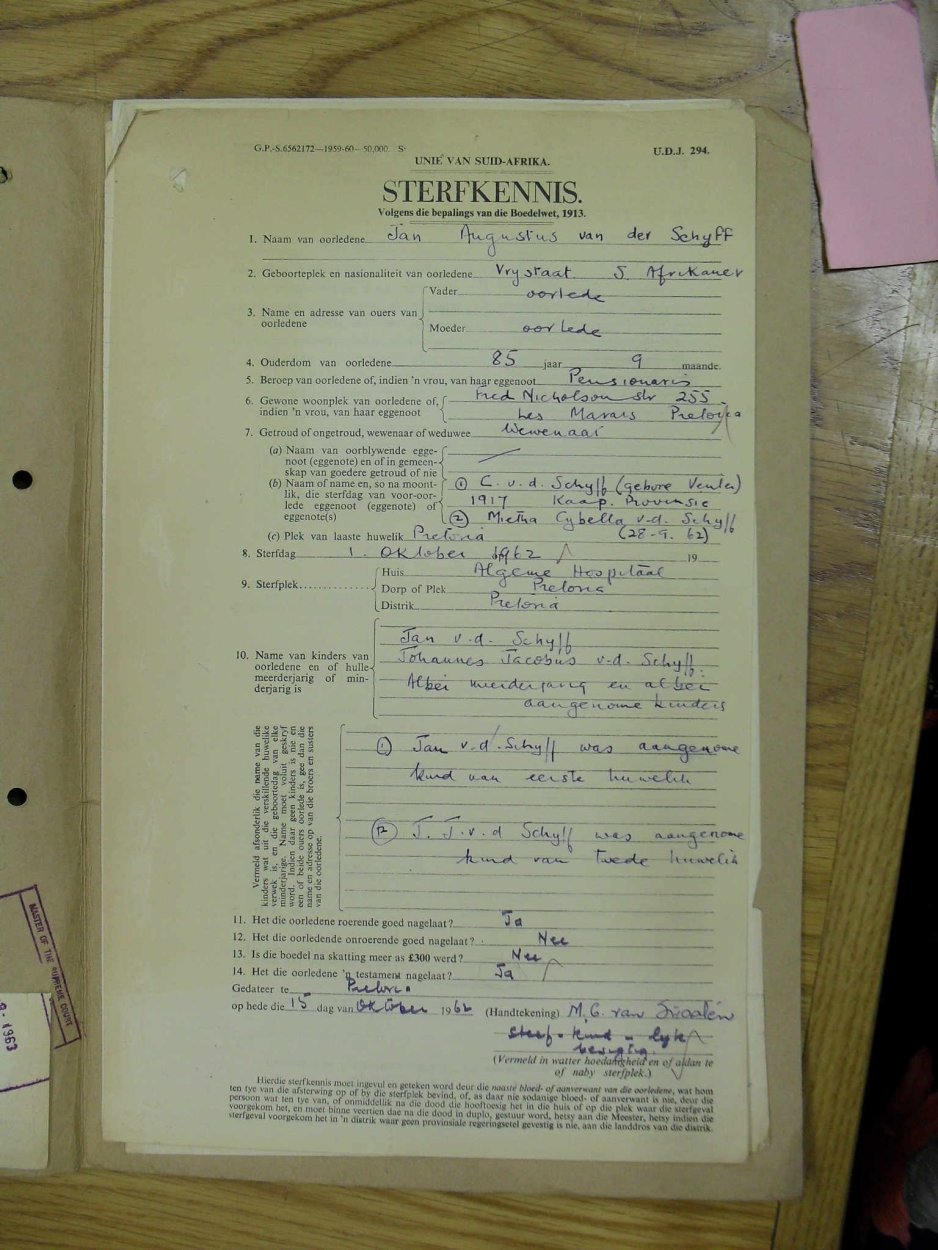 G.P.-S.6562172—1959-60—50,000. S
U.D.J. 294.
UNIE VAN SUID-AFRIKA.
STERFKENNIS.
Volgens die bepalings van die Boedelwet, 1913.
1. Naam van oorledene Jan Augustus van der Schyff
2. Geboorteplek en nasionaliteit van oorledene Vrystaat S. Afrikaner
3. Name en adresse van ouers van oorledene
Vader oorlede
Moeder oorlede
4. Ouderdom van oorledene 85 jaar 9 maande.
5. Beroep van oorledene of, indien 'n vrou, van haar eggenoot Pensionaris
6. Gewone woonplek van oorledene of, Fred Nicholson str 255
indien 'n vrou, van haar eggenoot Les Marais Pretoria
7. Getroud of ongetroud, wewenaar of weduwee Wewenaar
(a) Naam van oorblywende egge-
noot (eggenote) en of in gemeen-
skap van goedere getroud of nie
(b) Naam of name en, so na moont- ① C. v.d. Schyff (gebore Venter)
lik, die sterfdag van voor-oor- 1917 Kaap. Provinsie
lede eggenoot (eggenote) of ② Mietha Cybella v.d. Schyff
eggenote(s)
(c) Plek van laaste huwelik Pretoria (28-9. 62)
8. Sterfdag 1. Oktober 1962 19
9. Sterfplek
Huis Algeme Hospitaal
Dorp of Plek Pretoria
Distrik Pretoria
Jan v.d. Schyff
10. Name van kinders van Johannes Jacobus v.d. Schyff.
oorledene en of hulle
meerderjarig of min- Albei meerderjarig en albei
derjarig is
aangenome kinders
Vermeld afsonderlik die name van die
kinders wat uit die verskillende huwelike
verwek is, en die geboortedag van elke
minderjarige. Name moet voluit geskryf
word. Indien daar geen kinders is nie en
een of beide ouers oorlede is, gee dan die
name en adresse op van die broers en susters
van die oorledene.
① Jan v.d. Schyff was aangenome
kind van eerste huwelik
② J. J. v.d Schyff was aangenome
kind van twede huwelik
11. Het die oorledene roerende goed nagelaat? Ja
12. Het die oorledende onroerende goed nagelaat? Nee
13. Is die boedel na skatting meer as £300 werd? Nee
14. Het die oorledene 'n testament nagelaat? Ja
Gedateer te Pretoria
op hede die 15 dag van Oktober 1962 (Handtekening) M. C. van
(Vermeld in watter hoedanigheid en of aldan te
of naby sterfplek.)
Hierdie sterfkennis moet ingevul en geteken word deur die naaste bloed- of aanverwant van die oorledene, wat hom
ten tye van die afsterwing op of by die sterfplek bevind, of, as daar nie sodanige bloed- of aanverwant is nie, deur die
persoon wat ten tye van, of onmiddellik na die dood die hooftoesig het in die huis of op die plek waar die sterfgeval
voorgekom het, en moet binne veertien dae na die dood in duplo, gestuur word, hetsy aan die Meester, hetsy indien die
sterfgeval voorgekom het in 'n distrik waar geen provinsiale regeringsetel gevestig is nie, aan die landdros van die distrik.
MASTER OF THE SUPREME COURT
1963